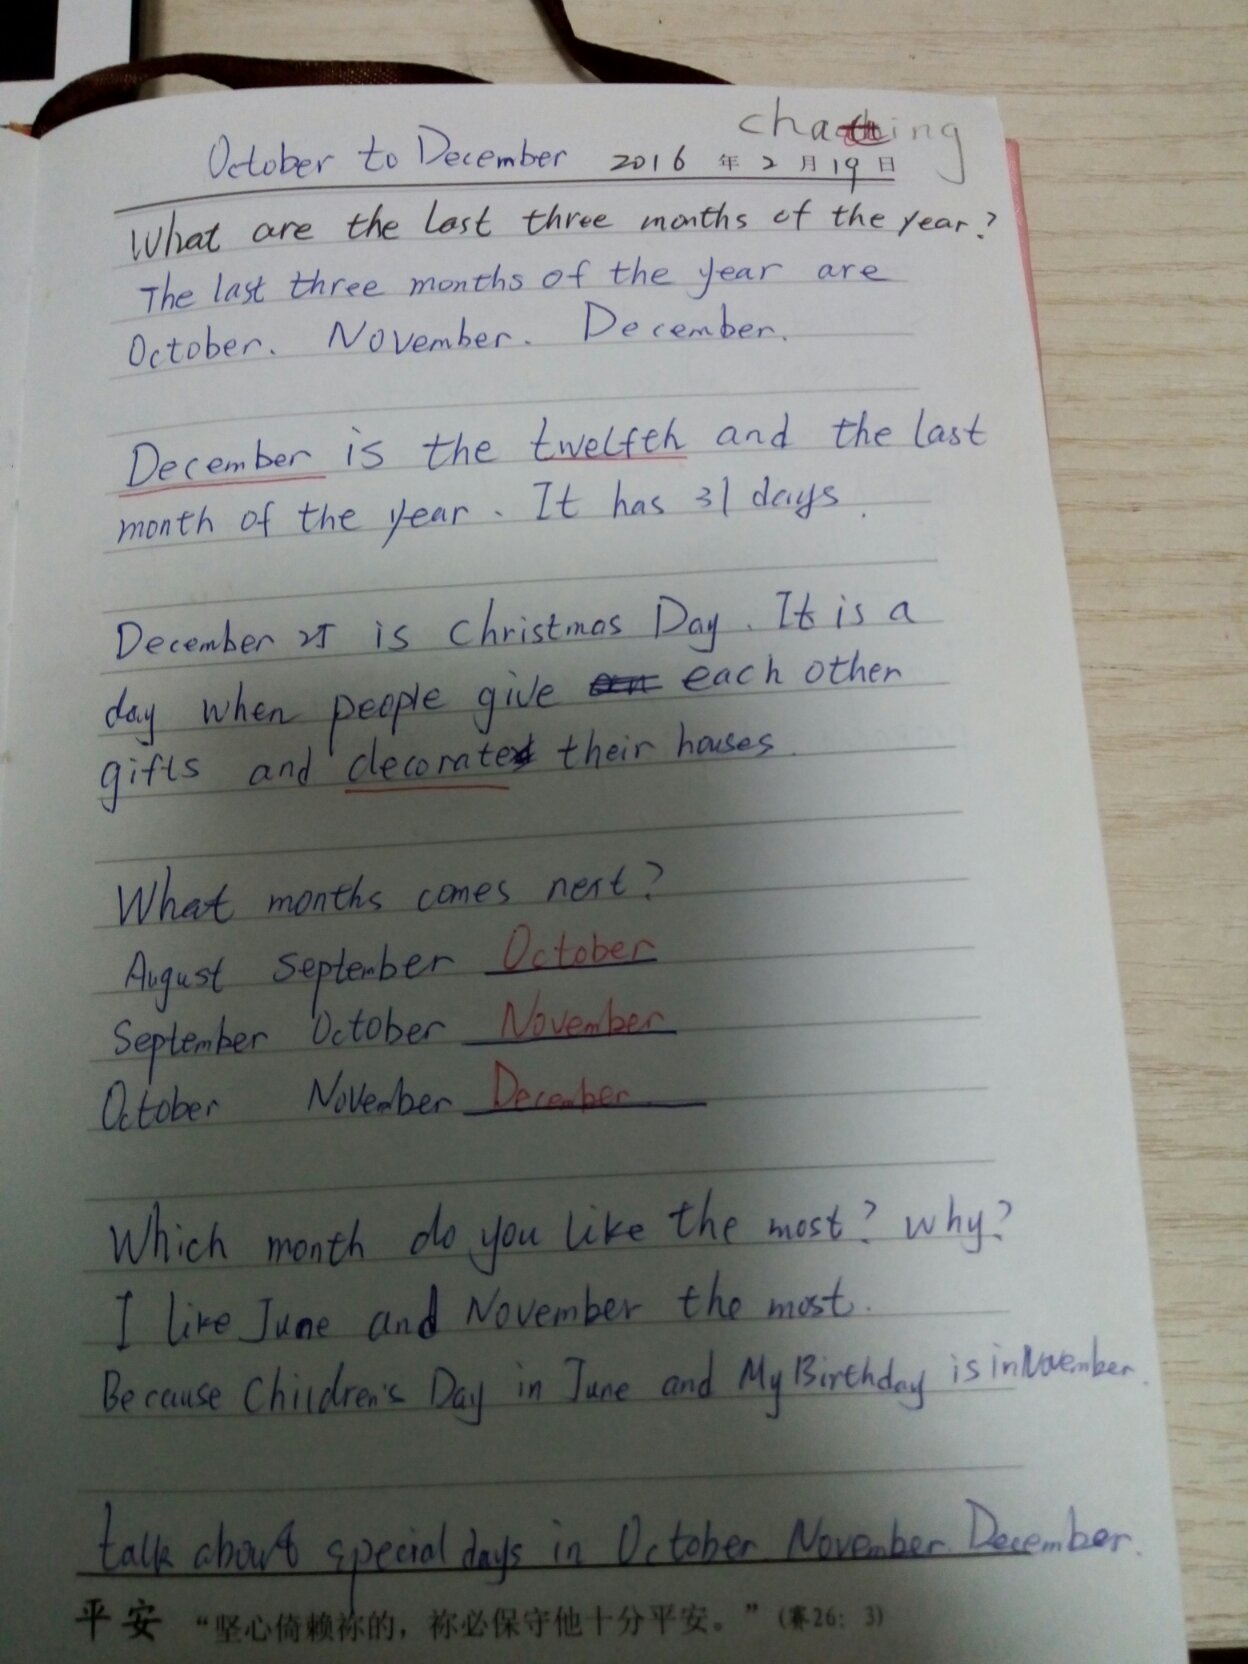 October to December 2016 年 2 月 19 日
What are the last three months of the year?
The last three months of the year are
October. November. December.
December is the twelfth and the last
month of the year. It has 31 days.
December 25 is Christmas Day. It is a
day when people give each other
gifts and decorate their houses.
What months comes next?
August September October
September October November
October November December
Which month do you like the most? why?
I like June and November the most.
Because Children's Day in June and My Birthday is in November.
talk about special days in October November December.
平安 “坚心倚赖祢的，祢必保守他十分平安。”（赛26：3）